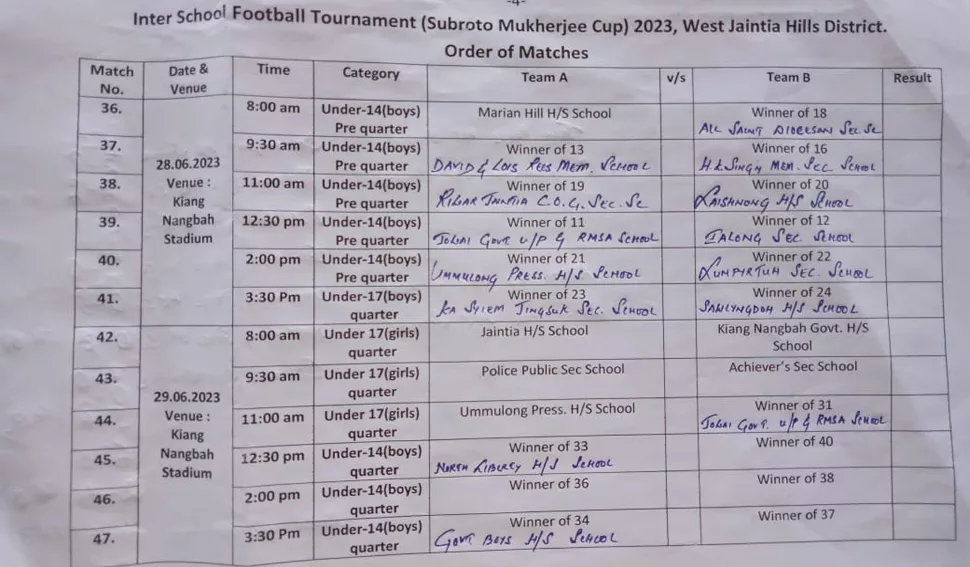 -4-
Inter School Football Tournament (Subroto Mukherjee Cup) 2023, West Jaintia Hills District.
Order of Matches
Match No. Date & Venue Time Category Team A v/s Team B Result
36. 8:00 am Under-14(boys) Pre quarter Marian Hill H/S School Winner of 18
ALL SAINT DIOCESAN SEC SC
37. 9:30 am Under-14(boys) Pre quarter Winner of 13 Winner of 16
DAVID & LOIS REES MEM. SCHOOL H.K SINGH MEM. SEC. SCHOOL
28.06.2023
Venue :
Kiang
Nangbah
Stadium
38. 11:00 am Under-14(boys) Pre quarter Winner of 19 Winner of 20
JAINTIA C.O.G. SEC. SC LAISHNONG H/S SCHOOL
39. 12:30 pm Under-14(boys) Pre quarter Winner of 11 Winner of 12
JOWAI GOVT U/P & RMSA SCHOOL IALONG SEC. SCHOOL
40. 2:00 pm Under-14(boys) Pre quarter Winner of 21 Winner of 22
UMMULONG PRESS. H/S SCHOOL LUMPYRTUH SEC. SCHOOL
41. 3:30 Pm Under-17(boys) quarter Winner of 23 Winner of 24
KA SYIEM JINGSUK SEC. SCHOOL SAWLYNGDOH H/S SCHOOL
42. 8:00 am Under 17(girls) quarter Jaintia H/S School Kiang Nangbah Govt. H/S School
43. 9:30 am Under 17(girls) quarter Police Public Sec School Achiever's Sec School
29.06.2023
Venue :
Kiang
Nangbah
Stadium
44. 11:00 am Under 17(girls) quarter Ummulong Press. H/S School Winner of 31
JOWAI GOVT. U/P & RMSA SCHOOL
45. 12:30 pm Under-14(boys) quarter Winner of 33 Winner of 40
NORTH LIBERTY H/S SCHOOL
46. 2:00 pm Under-14(boys) quarter Winner of 36 Winner of 38
47. 3:30 Pm Under-14(boys) quarter Winner of 34 Winner of 37
GOVT BOYS H/S SCHOOL